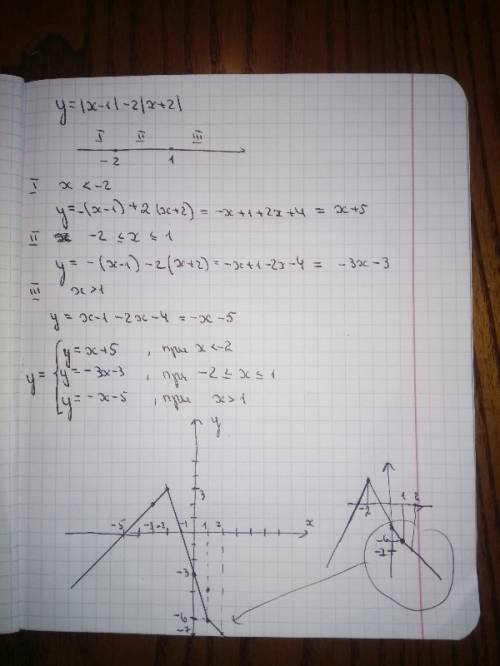 y=|x-1|-2|x+2|
I II III
-2 1
I x < -2
y=-(x-1)+2(x+2) = -x+1+2x+4 = x+5
II -2 ≤ x ≤ 1
y = -(x-1)-2(x+2) = -x+1-2x-4 = -3x-3
III x>1
y = x-1-2x-4 = -x-5
y= { y = x+5 , при x<-2
y = -3x-3 , при -2 ≤ x ≤ 1
y = -x-5 , при x>1
y
3
-5 -3 -2 -1 1 2 x
-3
-6
-7
-2 1 2
-6
-7